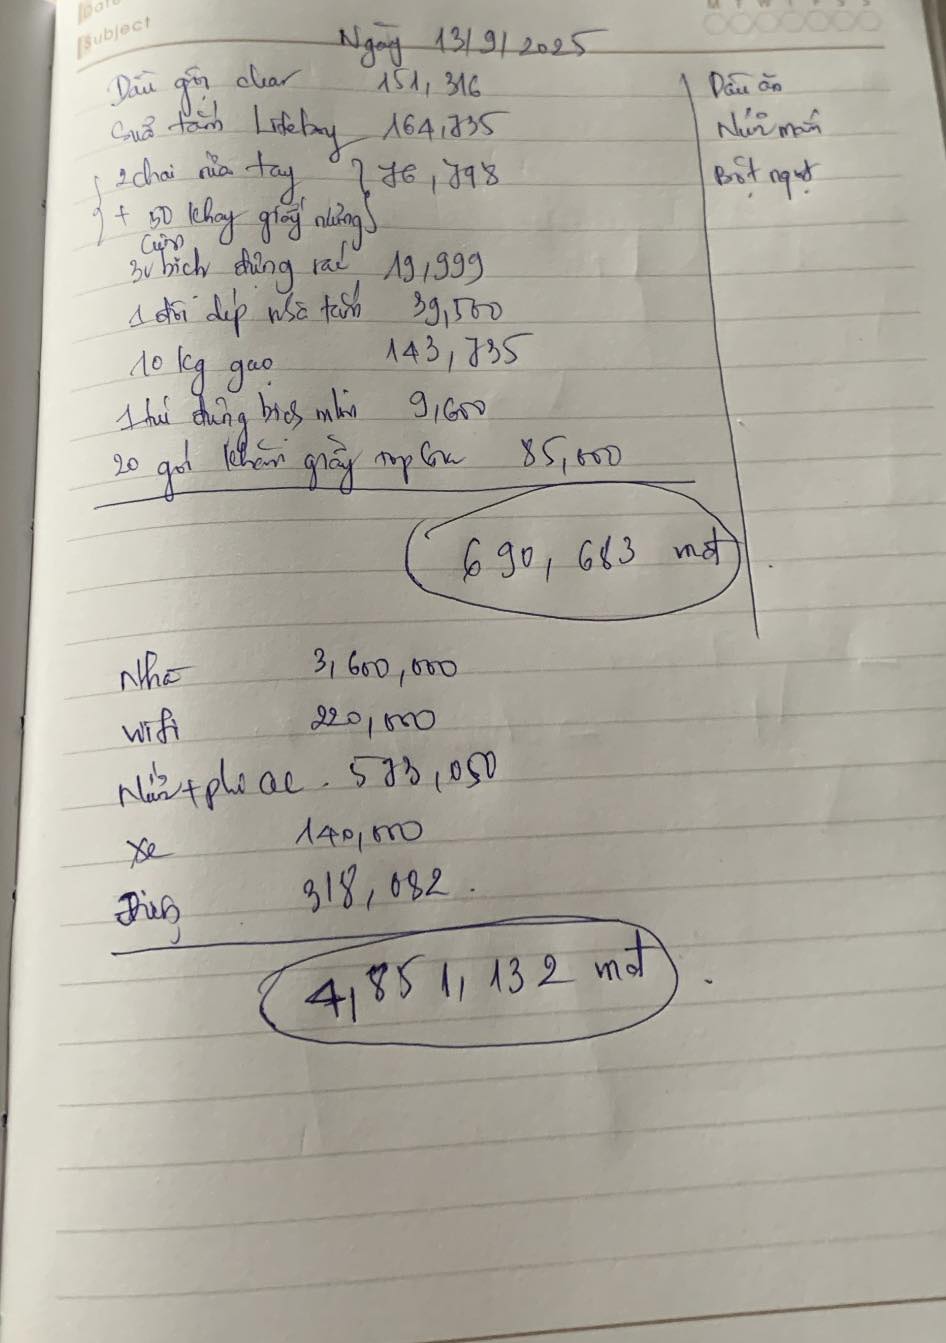 Subject
M T W T F S S
Ngày 13/9/2025
Dầu gội clear 151,316
Sữa tắm Lifeboy 164,735
2 chai rửa tay 76,798
+ 50 khay giấy nướng
3 cuộn bịch đựng rác 19,999
1 đôi dép nhà tắm 39,500
10 kg gạo 143,735
1 túi đựng bịch 9,600
20 gói khăn giấy 85,000
690,683 mđ
Dầu ăn
Nước mắm
Bột ngọt
Nhà 3,600,000
Wifi 220,000
Nước + phí 573,050
Xe 140,000
Điện 318,082.
4,851,132 mđ.